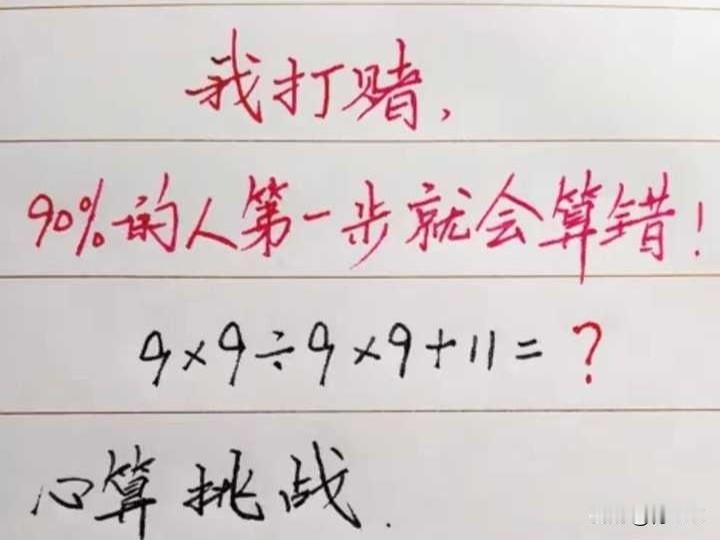 我打赌,
90%的人第一步就会算错!
9×9÷9×9+11=?
心算挑战.